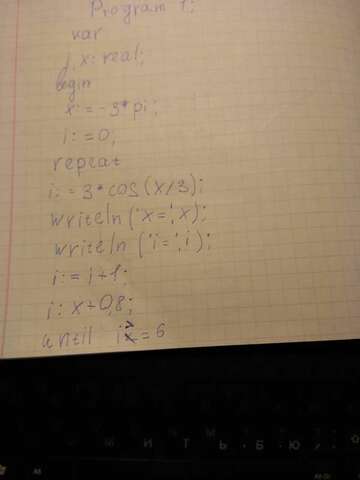 Program 1;
var
j, x: real;
begin
x:=-3*pi;
i:=0;
repeat
i:=3*cos(x/3);
writeln('x=',x);
writeln('i=',i);
i:=i+1;
i: x+0,8;
until i>=6
м и т ь б ю